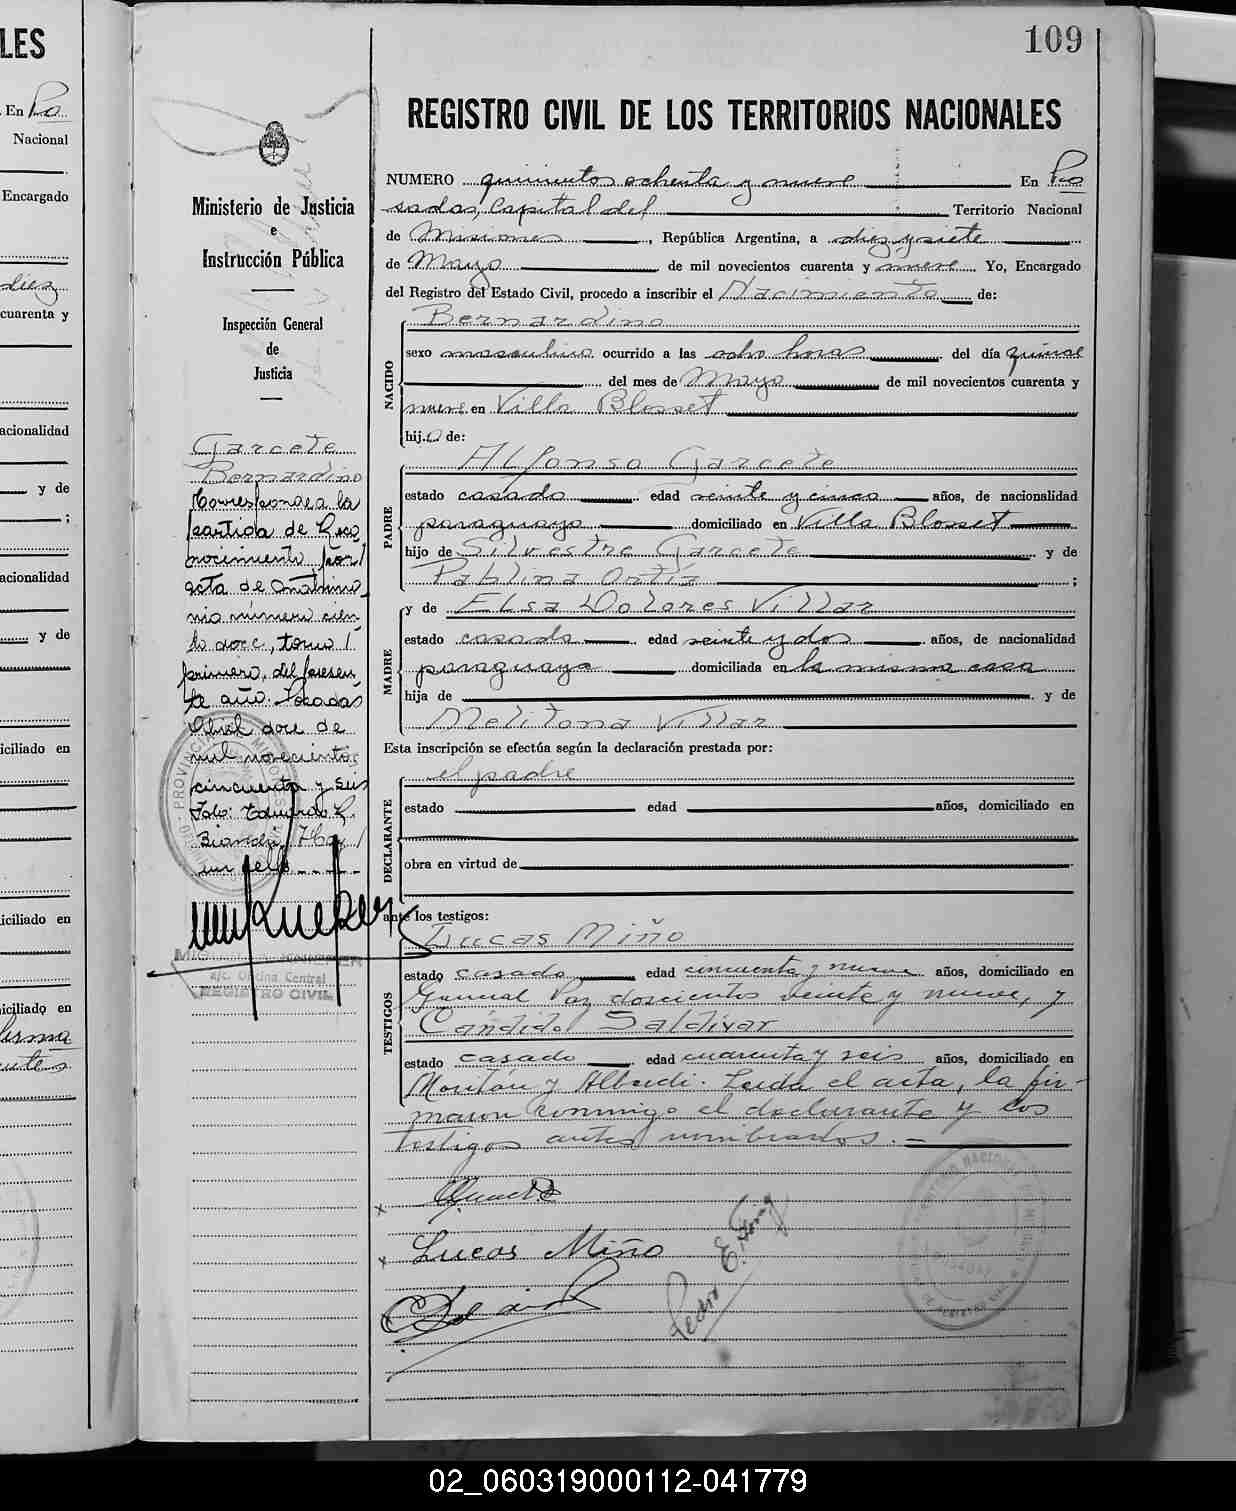 109
REGISTRO CIVIL DE LOS TERRITORIOS NACIONALES
NUMERO quinientos ochenta y nueve En Po
sadas, Capital del Territorio Nacional
de Misiones, República Argentina, a diez y siete
de Mayo de mil novecientos cuarenta y nueve Yo, Encargado
del Registro del Estado Civil, procedo a inscribir el Nacimiento de:
NACIDO
Bernardino
sexo masculino ocurrido a las ocho horas del día quince
del mes de Mayo de mil novecientos cuarenta y
nueve en Villa Blosset
hijo de:
PADRE
Alfonso Garcete
estado casado edad veinte y cinco años, de nacionalidad
paraguaya domiciliado en Villa Blosset
hijo de Silvestre Garcete y de
Pablina Ortíz;
MADRE
y de Elsa Dolores Villar
estado casada edad veinte y dos años, de nacionalidad
paraguaya domiciliada en la misma casa
hija de y de
Melitona Villar
Esta inscripción se efectúa según la declaración prestada por:
DECLARANTE
el padre
estado edad años, domiciliado en
obra en virtud de
ante los testigos:
TESTIGOS
Lucas Miño
estado casado edad cincuenta y nueve años, domiciliado en
General Paz doscientos veinte y nueve, y
Cándido Saldivar
estado casado edad cuarenta y seis años, domiciliado en
y Alberdi. Leída el acta, la fir-
maron conmigo el declarante y los
testigos antes nombrados.-
Lucas Miño
Pedro E.
Ministerio de Justicia
e
Instrucción Pública
Inspección General
de
Justicia
Garcete
Bernardino
Corresponde a la
partida de Reco
nocimiento por
acta de matrimo
nio número cien
to doce, tomo
primero, del presen
te año. Posadas
Abril doce de
mil novecientos
cincuenta y seis
Fdo: Eduardo L.
Hay
un sello
a/c. Oficina Central
REGISTRO CIVIL
LES
En Po
Nacional
Encargado
diez
cuarenta y
nacionalidad
y de
;
nacionalidad
y de
iciliado en
iciliado en
iciliado en
02_060319000112-041779